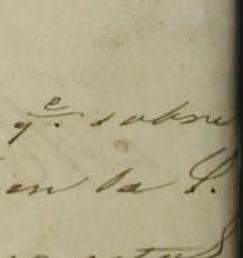 qe. sobre
en la S.